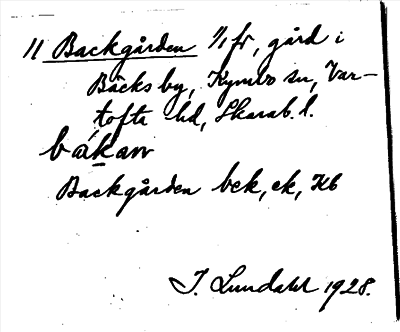 11 Backgården 1/1 fr, gård i
Bäcks by, Kymbo sn, Var-
tofte hd, Skarab. l.
bakan
Backgården bek, ek, Kb
J. Lundahl 1928.